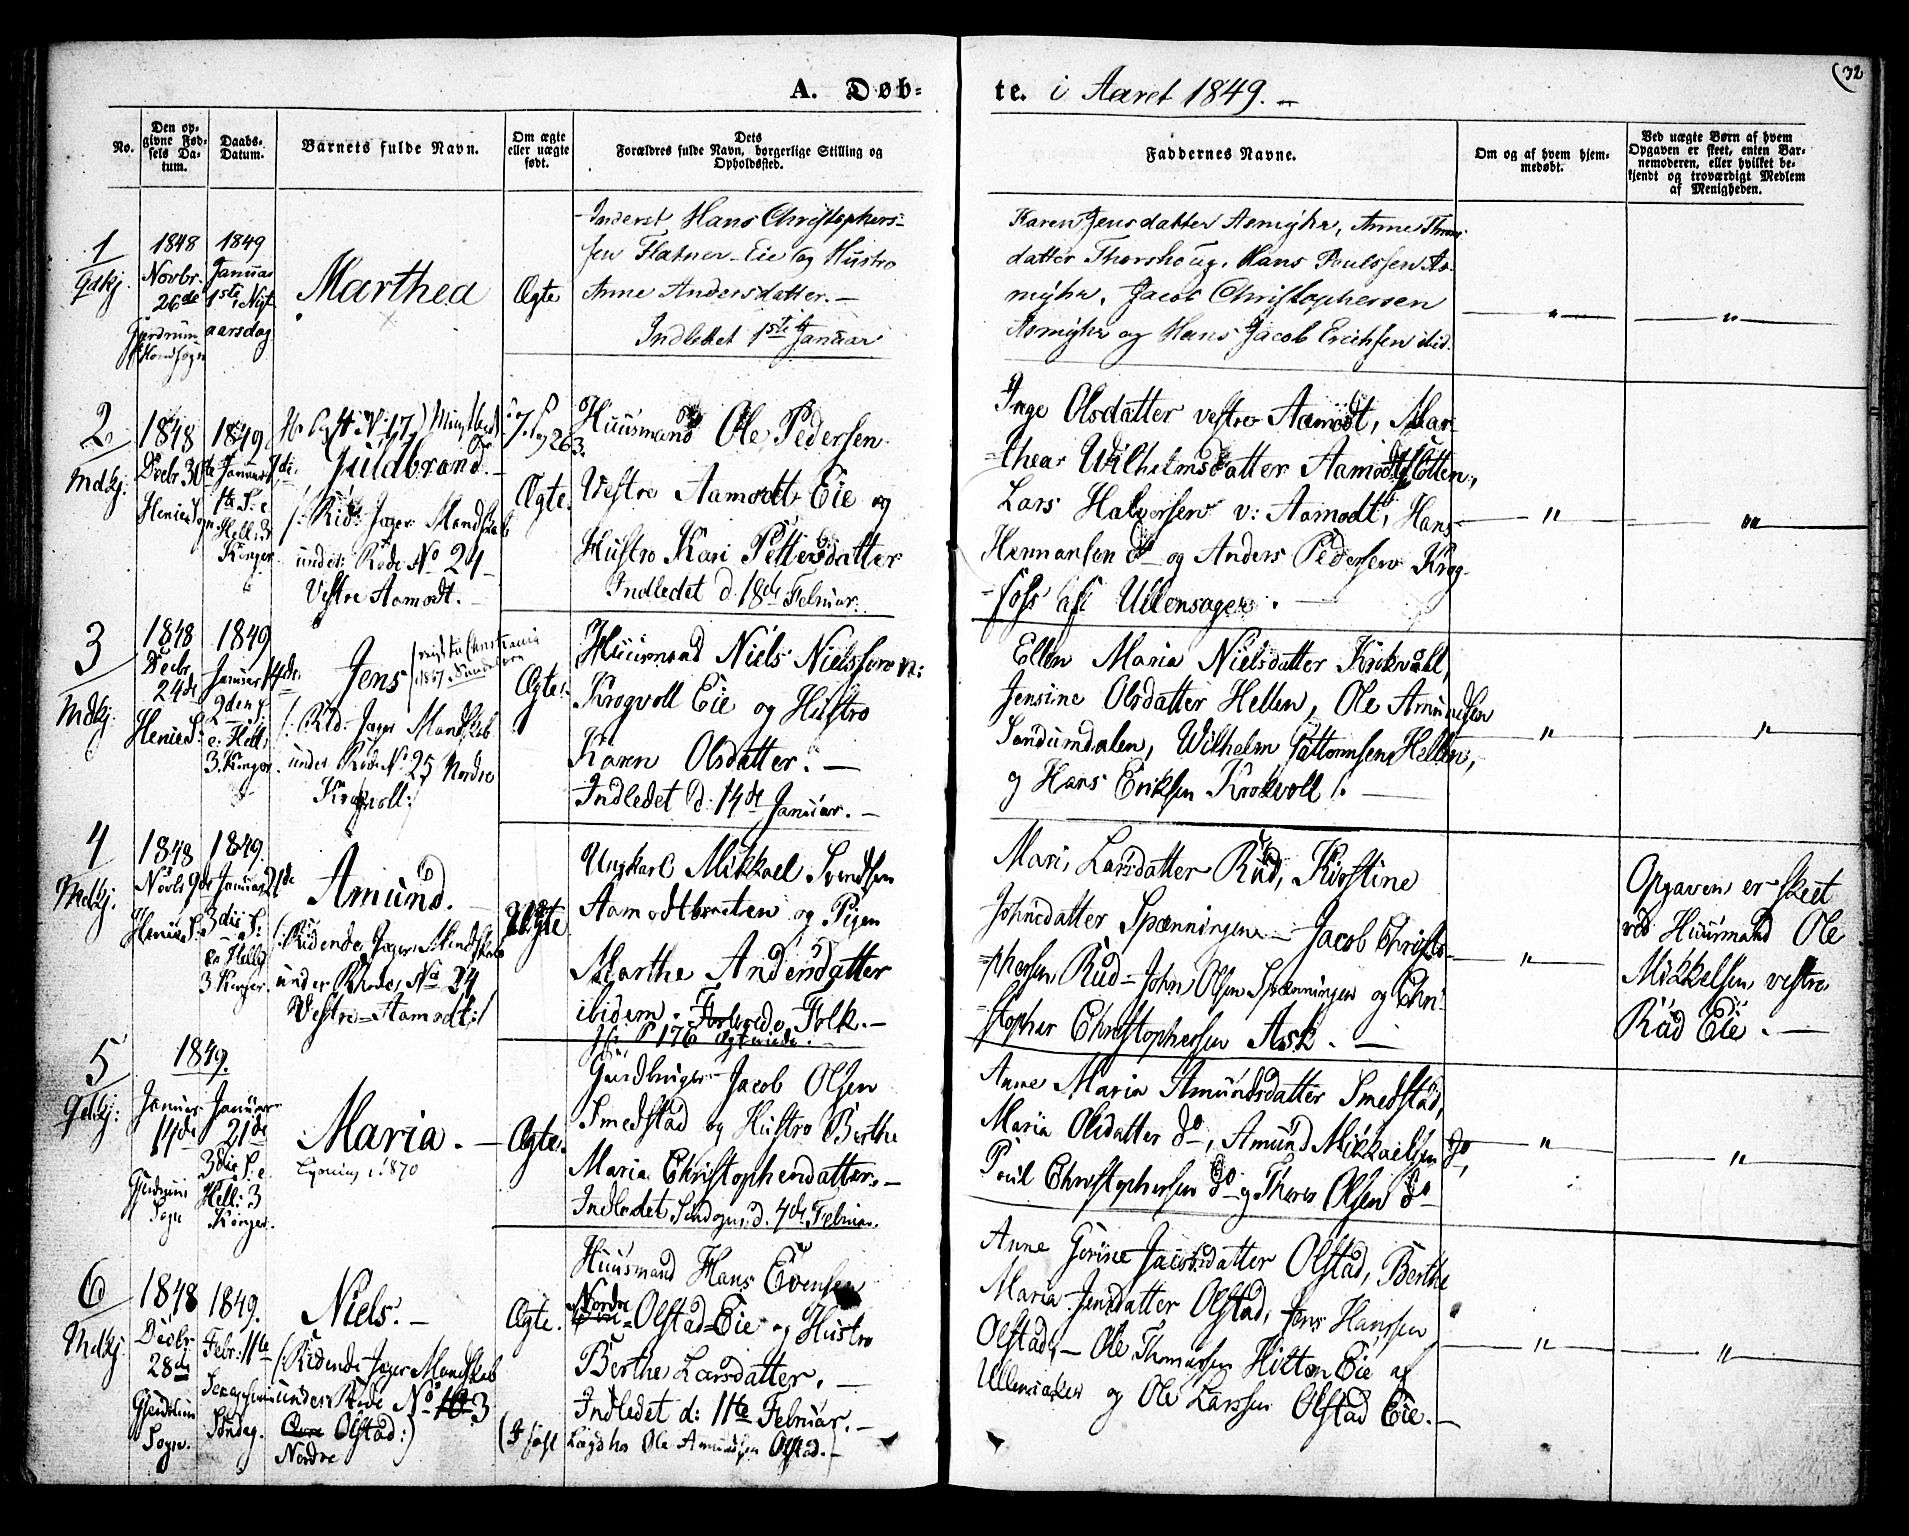 (32
A. Døb-
te. i Aaret 1849. –
No.
Den op-
givne Fød-
sels Da-
tum.
Daabs-
Datum.
Barnets fulde Navn.
Om ægte
eller uægte
født.
Dets
Forældres fulde Navn, borgerlige Stilling og
Opholdssted.
Faddernes Navne.
Om og af hvem hjem-
medøbt.
Ved uægte Børn af hvem
Opgaven er skeet, enten Bar-
nemoderen, eller hvilket be-
kjendt og troværdigt Medlem
af Menigheden.
1
Gdkj.
1848
Novbr.
26de
Gjerdrum
1849
Januar
1ste, Nyt
aarsdag
Marthea
Ægte
Inderst Hans Christophers-
sen Flatner-Eie og Hustro
Anne Andersdatter. –
Indledet 1ste Januar
Karen Jensdatter Asmyhr, Anne
datter Thorshoug, Hans Poulssen As-
myhr, Jacob Christophersen
Asmyhr og Hans Jacob Erichsen ibid.
"
"
2
Mdkj.
1848
Decbr. 30te
Henie Sogn
1849
Januar
1ste S: e
Hell: 3
Konger
Guldbrand. –
/: Rid: Jæger Mandskab
under Rode No 24 –
Vestre Aamodt. –
Ægte.
Huusmand Ole Pedersen
Vestre Aamodt Eie og
Hustro Kari Pettersdatter
Indledet d. 18de Februar.
Inge Olsdatter vestre Aamodt, Mar-
thea Wilhelmsdatter Aamodt
Lars Halvorsen v: Aamodt, Hans
Hermansen do og Anders Pedersen Krog-
foss af Ullensager. –
"
"
3
Mdkj.
1848
Decbr.
24de
Henie S:
1849
Januar 14de
2den S.
e: Hell:
3. Konger
Jens
/: Rid. Jæger Mandskab
under Rode No. 25 Nordre
Krogvoll:/
Ægte.
Huusmand Niels Nielssen n:
Krogvoll Eie og Hustro
Karen Olsdatter. –
Indledet d: 14de Januar. –
Ellen Maria Nielsdatter Krokvoll,
Jensine Olsdatter Hellen, Ole Amundsen
Sandumdalen, Wilhelm Guttormsen Hellen,
og Hans Eriksen Krokvoll. –
"
"
4
Mdkj.
1848
Novbr 9de
Henie S:
1849.
Januar 21de
3die S:
e: Hellig
3 Konger.
Amund. –
/: Ridende Jæger Mandskab
under Rode No 24
Vestre-Aamodt:/
Uægte
Ungkarl Mikkael Svendsen
Aamodtbraten og Pigen
Marthe Andersdatter
ibidem. Folk. –
Mari Larsdatter Rud, Kirstine
Johnsdatter Spænningen – Jacob Christo-
phersen Rud – John Olsen Spænningen og Chri-
stopher Christophersen Ask. –
"
Opgaven er skeet
ved Huusmand Ole
Mikkelsen vestre
Rud Eie. –
5
Gdkj:
1849.
Januar
14de
Gjerdrum
Sogn
Januar
21de
3die S. e
Hell: 3
Konger.
Maria. –
Lysning i 1870
Ægte.
Gaardbruger Jacob Olsen
Smedstad og Hustro Berthe
Maria Christophersdatter. –
Indledet Søndagen d. 4de Februar.
Anne Maria Amundsdatter Smedstad,
Maria Olsdatter do, Amund Mikkaelsen do,
Poul Christophersen do og Thores Olsen do
"
"
6
Mdkj
1848
Decbr
28de
Gjerdrum
Sogn.
1849.
Febr: 11te
Søndag.
Niels. –
(: Ridende Jæger Mandskab
under Rode No 3
Olstad:)
Nordre
Ægte.
Huusmand Hans Evensen
Nordre
Olstad-Eie og Hustro
Berthe Larsdatter. –
Indledet d: 11te Februar. –
Ole Amundsen Olstad. –
Anne Gorine Jacobsdatter Olstad, Berthe
Maria Jensdatter Olstad, Jens Hanssen
Olstad, – Ole Thomassen Hilton Eie af
Ullensaker og Ole Larssen Olstad Eie. –
"
"